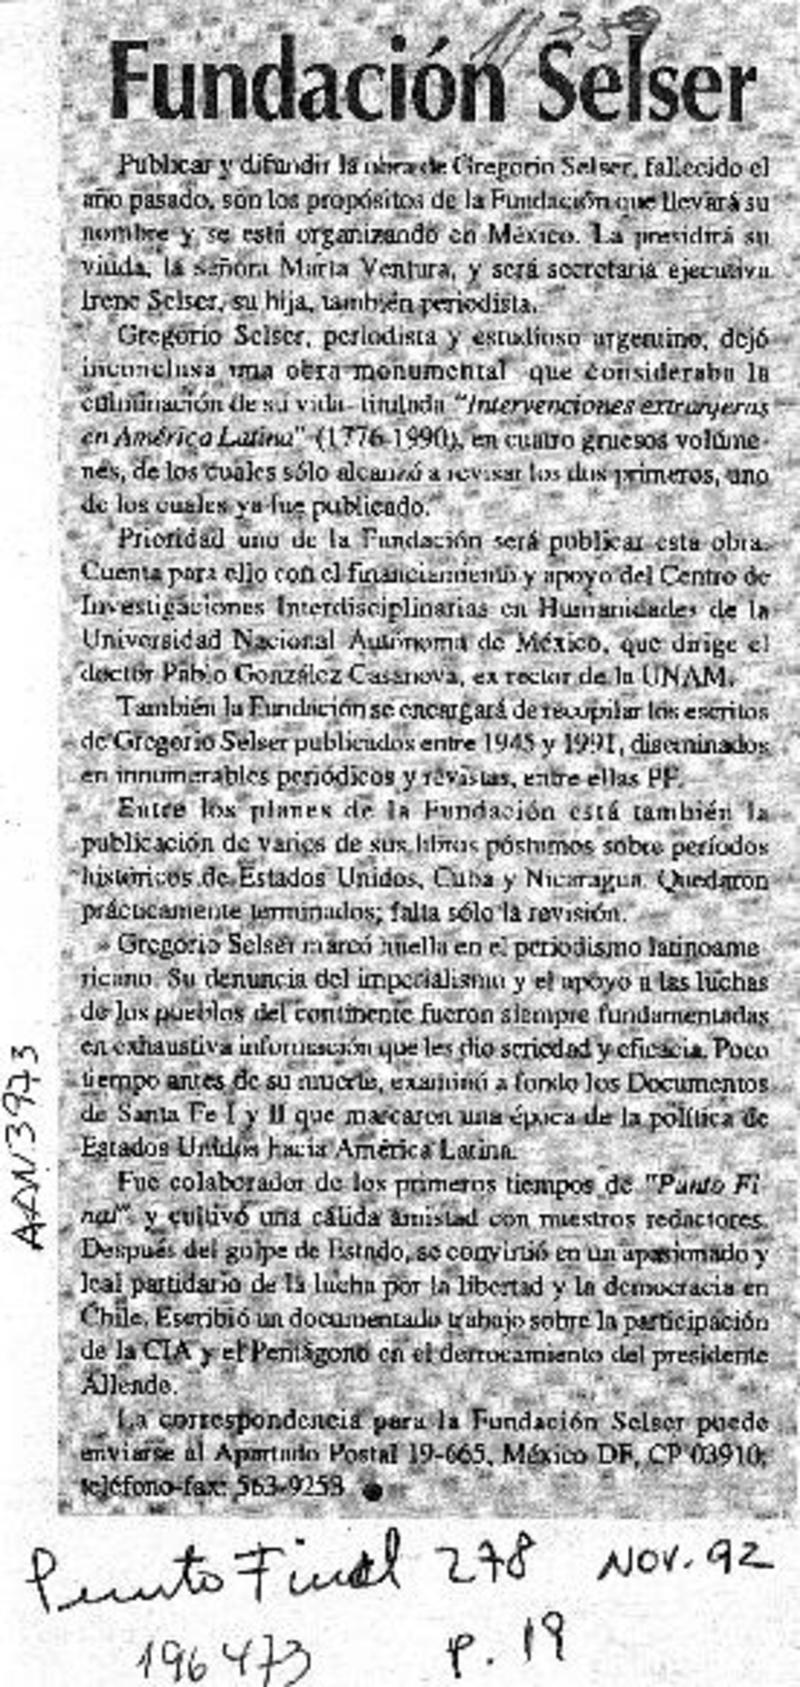 11359
Fundación Selser
Publicar y difundir la obra de Gregorio Selser, fallecido el
año pasado, son los propósitos de la Fundación que llevará su
nombre y se está organizando en México. La presidirá su
viuda, la señora Marta Ventura, y será secretaria ejecutiva
Irene Selser, su hija, también periodista.
Gregorio Selser, periodista y estudioso argentino, dejó
inconclusa una obra monumental -que consideraba la
culminación de su vida- titulada "Intervenciones extranjeras
en América Latina" (1776-1990), en cuatro gruesos volúme-
nes, de los cuales sólo alcanzó a revisar los dos primeros, uno
de los cuales ya fue publicado.
Prioridad uno de la Fundación será publicar esta obra.
Cuenta para ello con el financiamiento y apoyo del Centro de
Investigaciones Interdisciplinarias en Humanidades de la
Universidad Nacional Autónoma de México, que dirige el
doctor Pablo González Casanova, ex rector de la UNAM.
También la Fundación se encargará de recopilar los escritos
de Gregorio Selser publicados entre 1945 y 1991, diseminados
en innumerables periódicos y revistas, entre ellas PF.
Entre los planes de la Fundación está también la
publicación de varios de sus libros póstumos sobre períodos
históricos de Estados Unidos, Cuba y Nicaragua. Quedaron
prácticamente terminados; falta sólo la revisión.
Gregorio Selser marcó huella en el periodismo latinoame-
ricano. Su denuncia del imperialismo y el apoyo a las luchas
de los pueblos del continente fueron siempre fundamentadas
en exhaustiva información que les dio seriedad y eficacia. Poco
tiempo antes de su muerte, examinó a fondo los Documentos
de Santa Fe I y II que marcaron una época de la política de
Estados Unidos hacia América Latina.
Fue colaborador de los primeros tiempos de "Punto Fi-
nal" y cultivó una cálida amistad con nuestros redactores.
Después del golpe de Estado, se convirtió en un apasionado y
leal partidario de la lucha por la libertad y la democracia en
Chile. Escribió un documentado trabajo sobre la participación
de la CIA y el Pentágono en el derrocamiento del presidente
Allende.
La correspondencia para la Fundación Selser puede
enviarse al Apartado Postal 19-665, México DF, CP 03910;
teléfono-fax: 563-9258 ●
AAN3973
Punto Final 278 NOV. 92
196473 p. 19